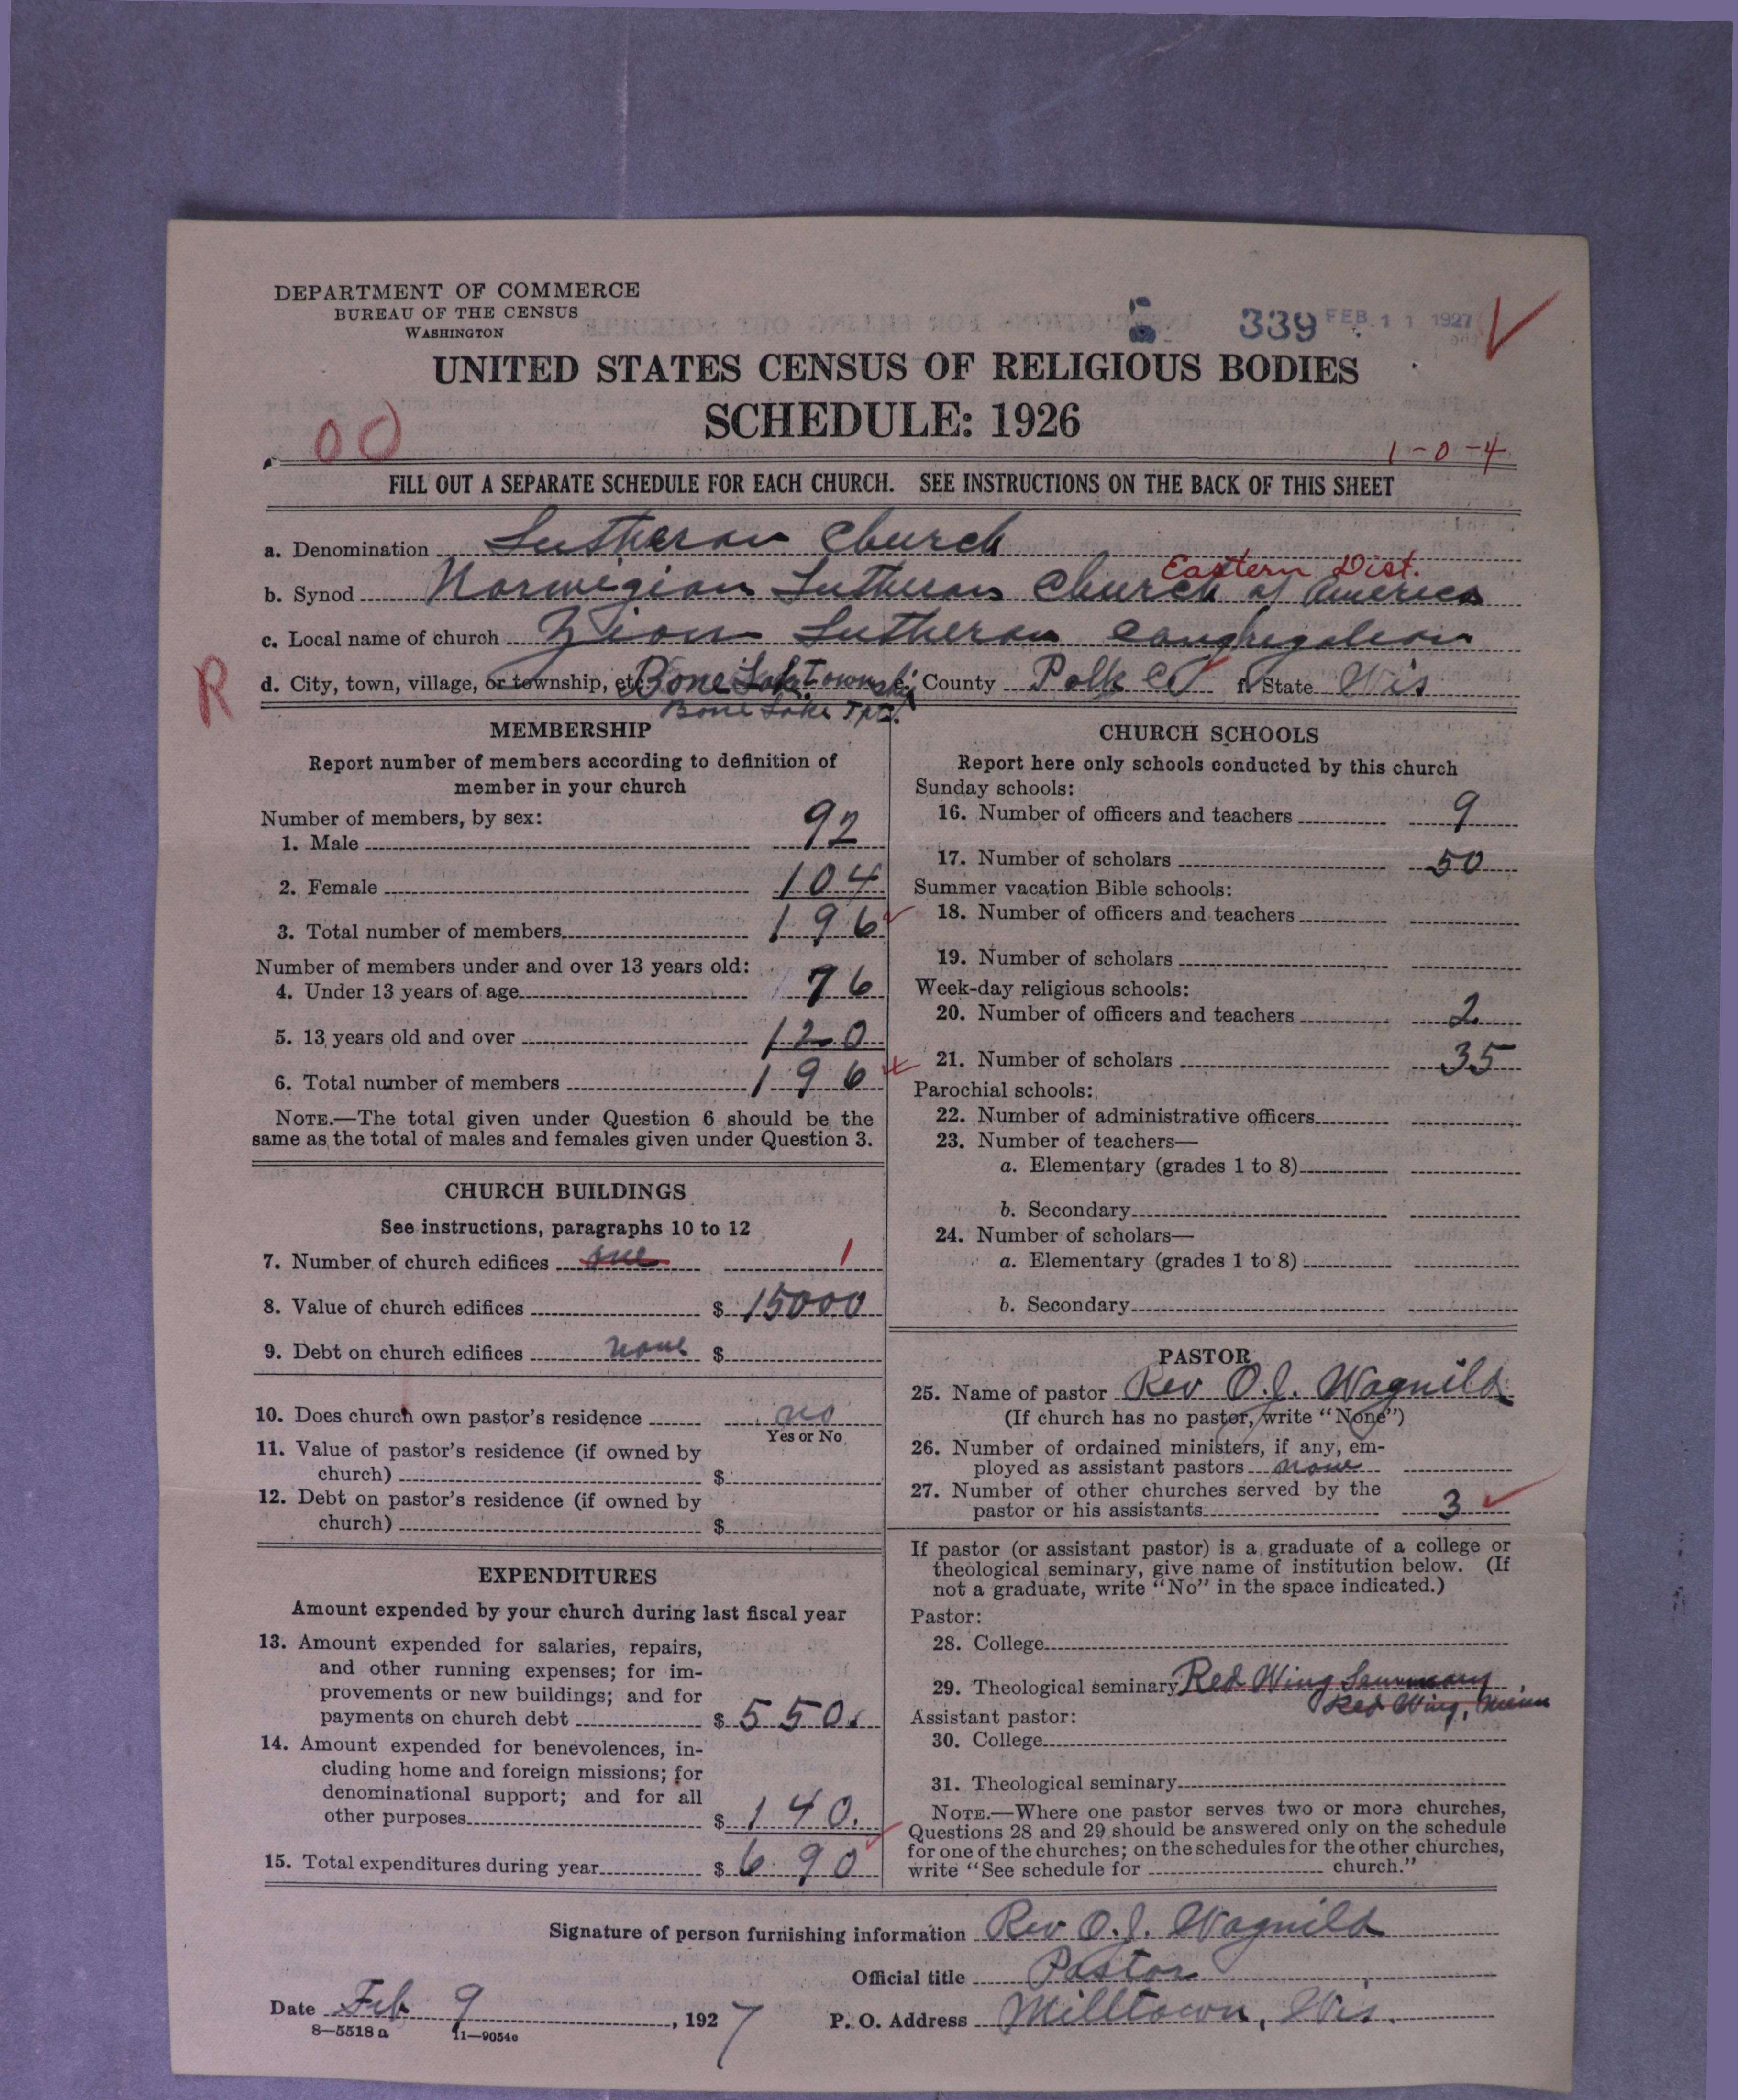 DEPARTMENT OF COMMERCE
BUREAU OF THE CENSUS
WASHINGTON
339 FEB 11 1927
UNITED STATES CENSUS OF RELIGIOUS BODIES
SCHEDULE: 1926
00
1-0-4
FILL OUT A SEPARATE SCHEDULE FOR EACH CHURCH. SEE INSTRUCTIONS ON THE BACK OF THIS SHEET
a. Denomination Lutheran Church
Eastern Dist.
b. Synod Norwigian Lutheran Church of America
c. Local name of church Zion Lutheran Congregation
R
d. City, town, village, or township, etc. Bone Lake Township e. County Polk Co f. State Wis
Bone Lake Twp.
MEMBERSHIP
Report number of members according to definition of
member in your church
Number of members, by sex:
1. Male 92
2. Female 104
3. Total number of members 196
Number of members under and over 13 years old:
4. Under 13 years of age 76
5. 13 years old and over 120
6. Total number of members 196
NOTE.—The total given under Question 6 should be the
same as the total of males and females given under Question 3.
CHURCH BUILDINGS
See instructions, paragraphs 10 to 12
7. Number of church edifices one 1
8. Value of church edifices $ 15000
9. Debt on church edifices none $
10. Does church own pastor's residence no
Yes or No
11. Value of pastor's residence (if owned by
church) $
12. Debt on pastor's residence (if owned by
church) $
EXPENDITURES
Amount expended by your church during last fiscal year
13. Amount expended for salaries, repairs,
and other running expenses; for im-
provements or new buildings; and for
payments on church debt $ 550.
14. Amount expended for benevolences, in-
cluding home and foreign missions; for
denominational support; and for all
other purposes $ 140.
15. Total expenditures during year $ 690
CHURCH SCHOOLS
Report here only schools conducted by this church
Sunday schools:
16. Number of officers and teachers 9
17. Number of scholars 50
Summer vacation Bible schools:
18. Number of officers and teachers
19. Number of scholars
Week-day religious schools:
20. Number of officers and teachers 2
21. Number of scholars 35
Parochial schools:
22. Number of administrative officers
23. Number of teachers—
a. Elementary (grades 1 to 8)
b. Secondary
24. Number of scholars—
a. Elementary (grades 1 to 8)
b. Secondary
PASTOR
25. Name of pastor Rev O. J. Wagnild
(If church has no pastor, write "None")
26. Number of ordained ministers, if any, em-
ployed as assistant pastors none
27. Number of other churches served by the
pastor or his assistants 3
If pastor (or assistant pastor) is a graduate of a college or
theological seminary, give name of institution below. (If
not a graduate, write "No" in the space indicated.)
Pastor:
28. College
29. Theological seminary Red Wing Seminary
Red Wing, Minn
Assistant pastor:
30. College
31. Theological seminary
NOTE.—Where one pastor serves two or more churches,
Questions 28 and 29 should be answered only on the schedule
for one of the churches; on the schedules for the other churches,
write "See schedule for church."
Signature of person furnishing information Rev O. J. Wagnild
Official title Pastor
Date Feb 9, 1927
P. O. Address Milltown, Wis.
8—5518 a 11—9054e